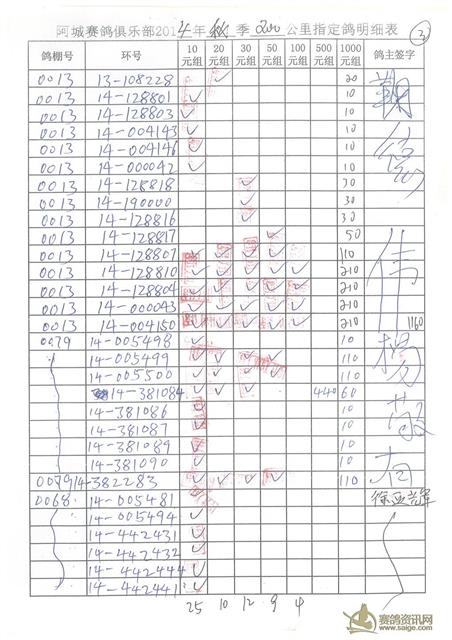 阿城赛鸽俱乐部2014年秋季200公里指定鸽明细表 ③
鸽棚号 环号 10元组 20元组 30元组 50元组 100元组 500元组 1000元组 鸽主签字
0013 13-108228 ✓ 20
0013 14-128801 ✓ 10
0013 14-128803 ✓ 10
0013 14-004143 ✓ 10
0013 14-004146 ✓ 10
0013 14-000042 ✓ 10
0013 14-128818 ✓ 30
0013 14-190000 ✓ 30
0013 14-128816 ✓ 30
0013 14-128817 ✓ 50
0013 14-128807 ✓ ✓ ✓ ✓ 110
0013 14-128810 ✓ ✓ ✓ ✓ ✓ 210
0013 14-128804 ✓ ✓ ✓ ✓ ✓ 210
0013 14-000043 ✓ ✓ ✓ ✓ ✓ 210
0013 14-004150 ✓ ✓ ✓ ✓ ✓ 210 1160
0079 14-005498 ✓ 10
14-005499 ✓ ✓ ✓ ✓ 110
14-005500 ✓ ✓ ✓ ✓ 110
14-381084 ✓ ✓ ✓ 440 60
14-381086 ✓ 10
14-381087 ✓ 10
14-381089 ✓ 10
14-381090 ✓ 10
0079 14-382283 ✓ ✓ ✓ ✓ 110
0068 14-005481 ✓
14-005494 ✓
14-442431 ✓
14-442432 ✓
14-442444 ✓
14-442441 ✓
25 10 12 9 4
赛鸽资讯网
www.saige.com